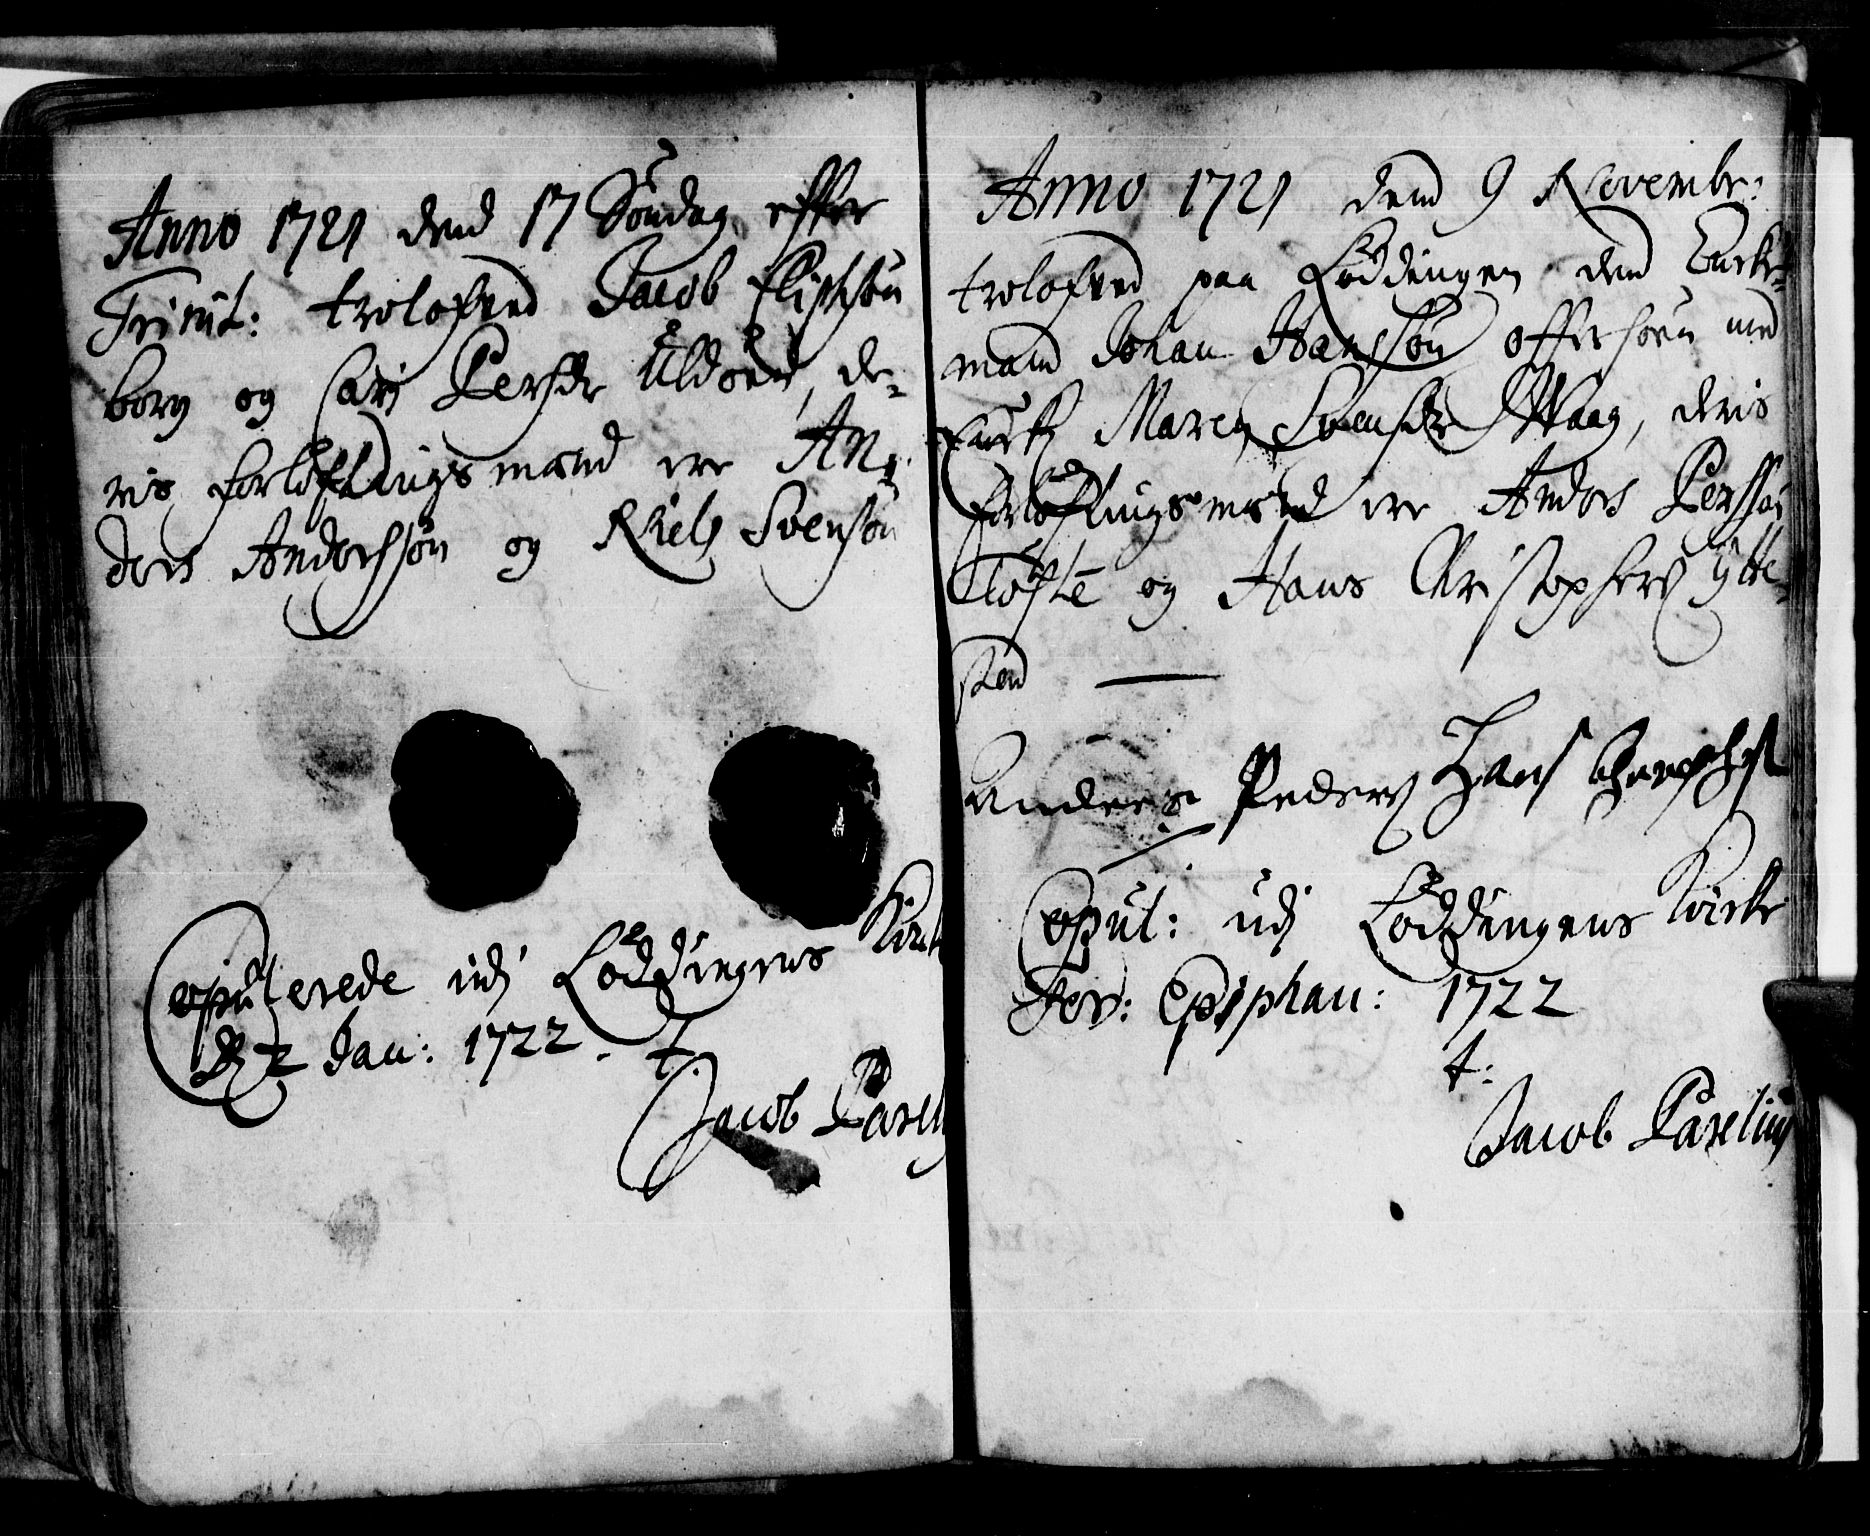 Anno 1721 dend 17 Søndag effter
Trinit: trolofved Jacob
borg og Cari Persdr Uldøen, de-
ris forløfftingsmænd ere An-
ders Andersøn og Niels Svensøn
Copulerede udj Løddingens Kirck
d 2 Jan: 1722. t.
Jacob Parelij
Anno 1721 dend 9 Novembr:
trolofved paa Løddingen dend Encke-
mand Johan Hanssøn Offersøen med
Encken Maren Svensdr Waag, deris
forløfftingsmænd ere Anders Perssøn
Tofte og Hans Christophers Ytte-
stad
Anders Peders Hans
Copul: udj Løddingens Kircke
Fer: Epiphan: 1722
t:
Jacob Parelius